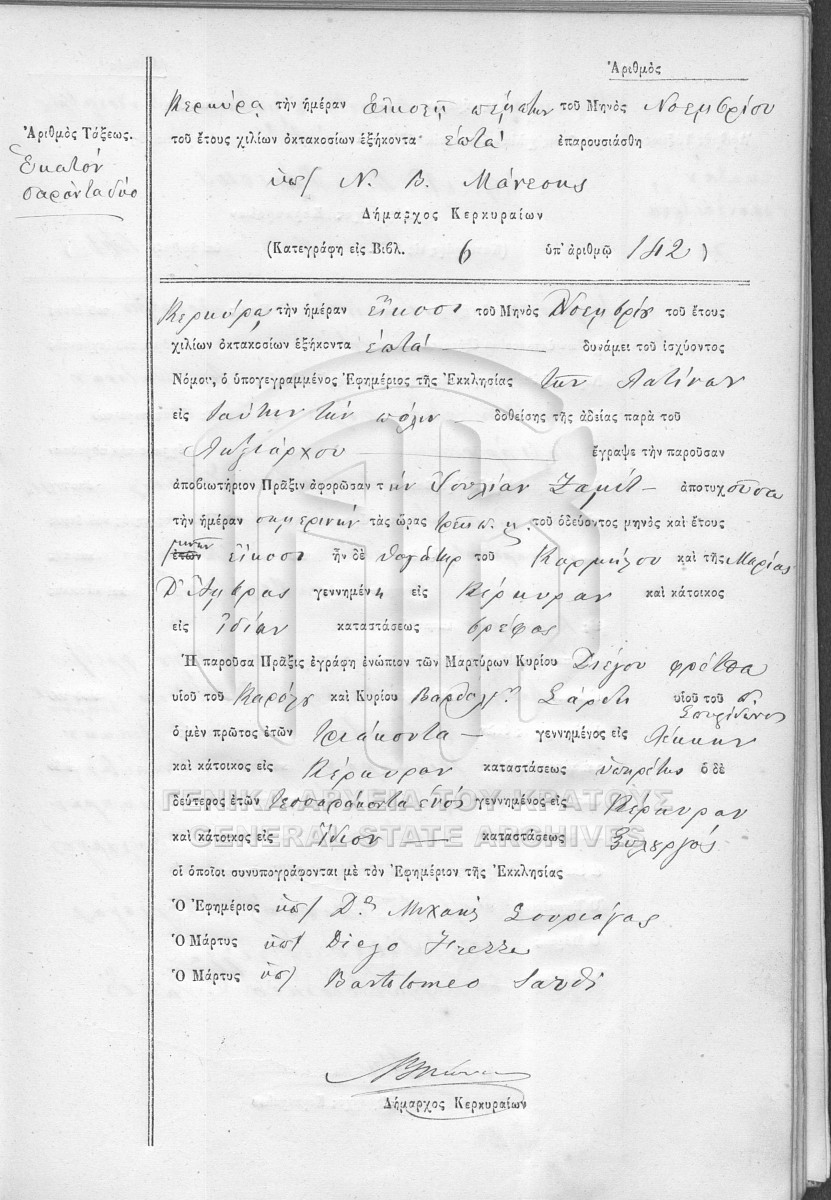 Ἀριθμὸς
Κερκύρᾳ τὴν ἡμέραν Εἰκοστῇ πέμπτῃ τοῦ Μηνὸς Νοεμβρίου
Ἀριθμὸς Τάξεως.
Ἑκατόν
σαράντα δύο
τοῦ ἔτους χιλίων ὀκτακοσίων ἑξήκοντα ἑπτά ἐπαρουσιάσθη
ὑπ/ Ν. Β. Μάνεσης
Δήμαρχος Κερκυραίων
(Κατεγράφη εἰς Βιβλ. 6 ὑπ' ἀριθμῷ 142)
Κερκύρᾳ τὴν ἡμέραν εἴκοσι τοῦ Μηνὸς Νοεμβρίου τοῦ ἔτους
χιλίων ὀκτακοσίων ἑξήκοντα ἑπτά δυνάμει τοῦ ἰσχύοντος
Νόμου, ὁ ὑπογεγραμμένος Ἐφημέριος τῆς Ἐκκλησίας τῶν Λατίνων
εἰς ταύτην τὴν πόλιν δοθείσης τῆς ἀδείας παρὰ τοῦ
Ληξιάρχου ἔγραψε τὴν παροῦσαν
ἀποβιωτήριον Πρᾶξιν ἀφορῶσαν τὴν Ἰουλίαν Ζαμίτ ἀποτυχοῦσα
τὴν ἡμέραν σημερινήν τὰς ὥρας τοῦ ὁδεύοντος μηνὸς καὶ ἔτους
μηνῶν
ἐτῶν εἴκοσι ἦν δὲ θυγάτηρ τοῦ Καρμήλου καὶ τῆς Μαρίας
γεννημένη εἰς Κέρκυραν καὶ κάτοικος
εἰς ἰδίαν καταστάσεως βρέφος
Ἡ παροῦσα Πρᾶξις ἐγράφη ἐνώπιον τῶν Μαρτύρων Κυρίου Διέγου Φρέτσα
υἱοῦ τοῦ Καρόλου καὶ Κυρίου Σάρδη υἱοῦ τοῦ π.
Σπυρίδωνος
ὁ μὲν πρῶτος ἐτῶν τριάκοντα γεννημένος εἰς Λέκκην
καὶ κάτοικος εἰς Κέρκυραν καταστάσεως ὑπηρέτης ὁ δὲ
δεύτερος ἐτῶν τεσσαράκοντα ἑνός γεννημένος εἰς Κέρκυραν
καὶ κάτοικος εἰς ἴδιον καταστάσεως ξυλεργός
οἱ ὁποῖοι συνυπογράφονται μὲ τὸν Ἐφημέριον τῆς Ἐκκλησίας
Ὁ Ἐφημέριος ὑπ/ Δ. Μιχαήλ
Ὁ Μάρτυς ὑπ/ Diego Frezza
Ὁ Μάρτυς ὑπ/ Bartolomeo Sardi
Δήμαρχος Κερκυραίων
ΓΕΝΙΚΑ ΑΡΧΕΙΑ ΤΟΥ ΚΡΑΤΟΥΣ
GENERAL STATE ARCHIVES